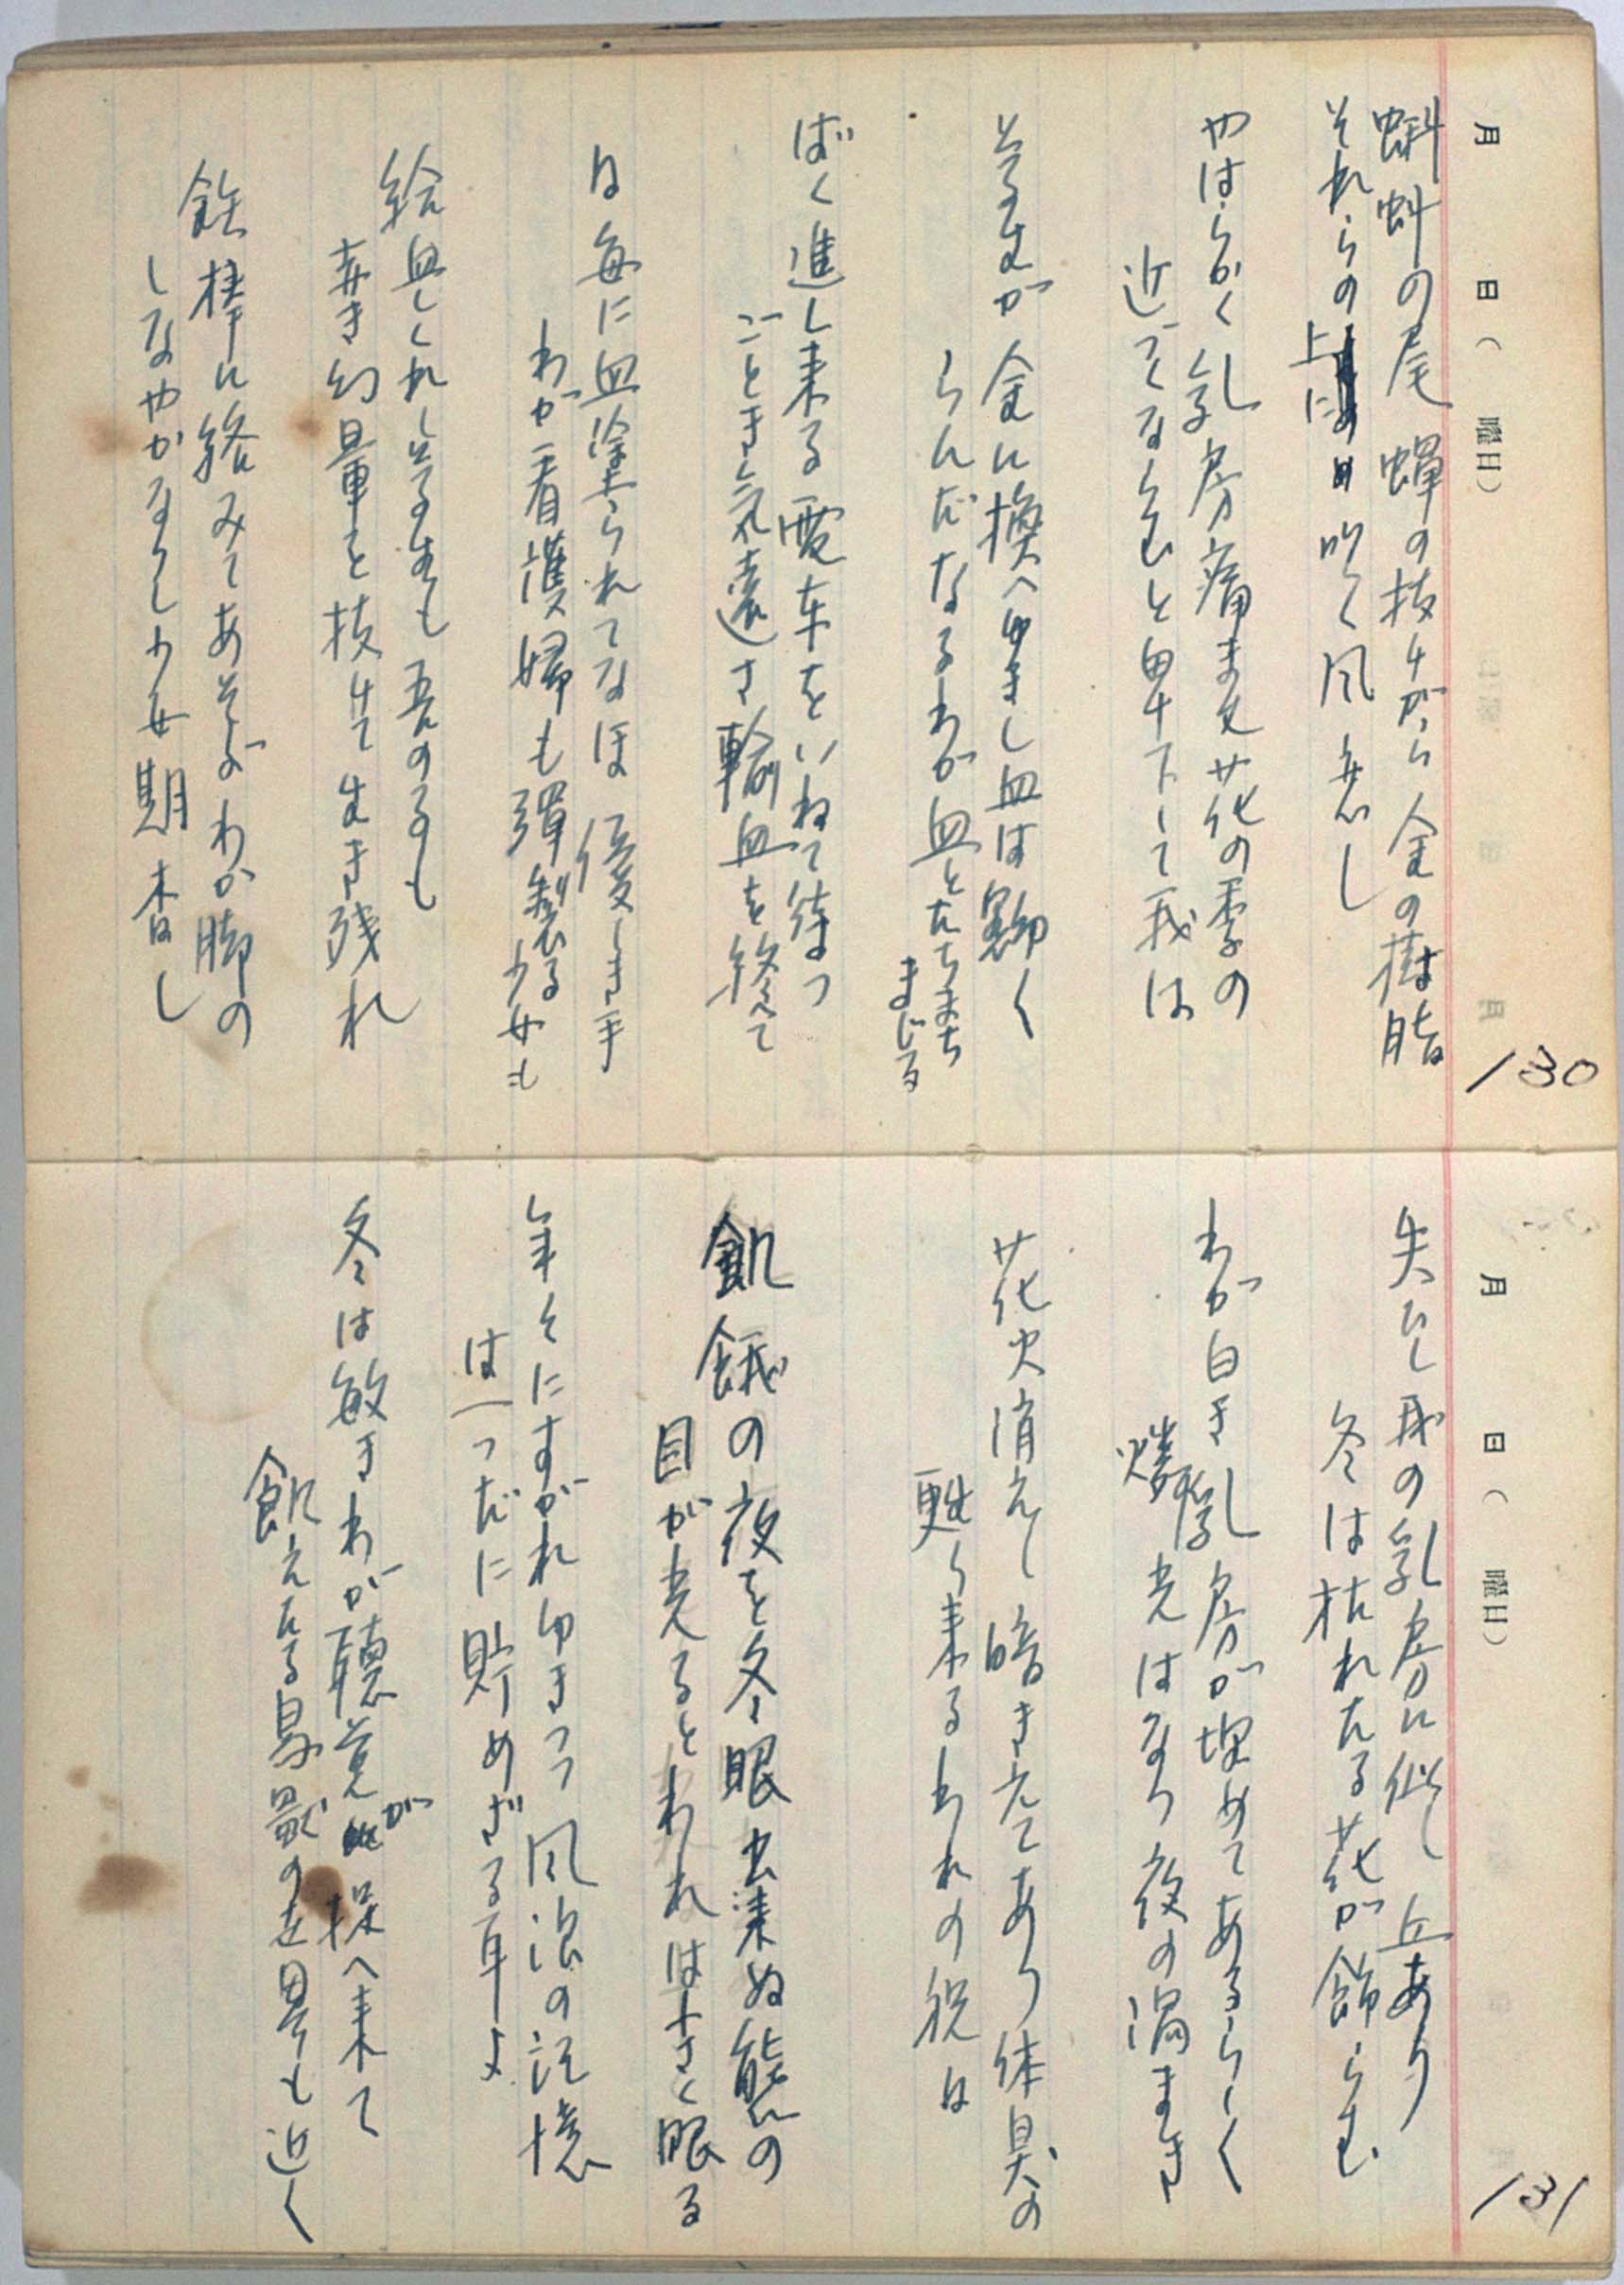 月 日( 曜日)
130
蝌蚪の尾 蟬の抜けがら 金の樹脂
それらの上に吹く風恋し
やはらかく乳房痛まむ花の季の
近づくならむと卑下して我は
金に換へゆきし血は
らんだなるわが血とたちまち
まじる
ばく進し来る電車をいねて待つ
ごとき気遠さ輸血を終へて
日毎に血塗られてなほ優しき手
わが看護婦も弾製る少女も
給血しくれし
幻暈を抜けて生き残れ
鉄棒に絡みてあそぶわが脚の
しなやかなりし少女期杳し
月 日( 曜日)
131
失ひし我の乳房に似し丘あり
冬は枯れたる花が飾らむ
わが白き乳房が埋めてあるらしく
燐光はなつ夜の渦まき
花火消えし暗き穴てあり体臭の
甦り来るわれの祝は
飢餓の夜を冬眠出来ぬ熊の
目が光るとわれは小さく眠る
年々にすがれゆきつつ風浪の記憶
は一つだに貯めざる耳よ
冬は敏きわが聴覚が捉へ来て
飢ゑたる鳥獣の跫も近く